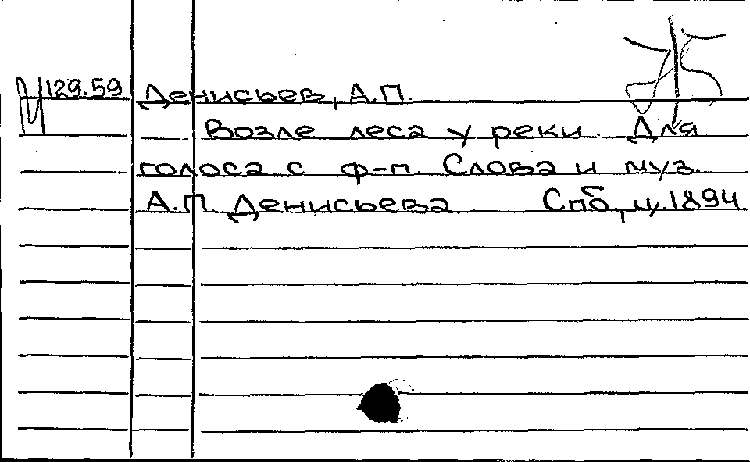 129.59 Денисьев, А.П.
Возле леса у реки. Для
голоса с ф-п. Слова и муз.
А.П. Денисьева Спб, ц.1894